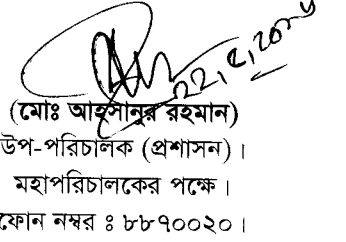 (মোঃ আহসানুর রহমান)
উপ-পরিচালক (প্রশাসন) ।
মহাপরিচালকের পক্ষে ।
ফোন নম্বর ঃ ৮৮৭০০২০ ।